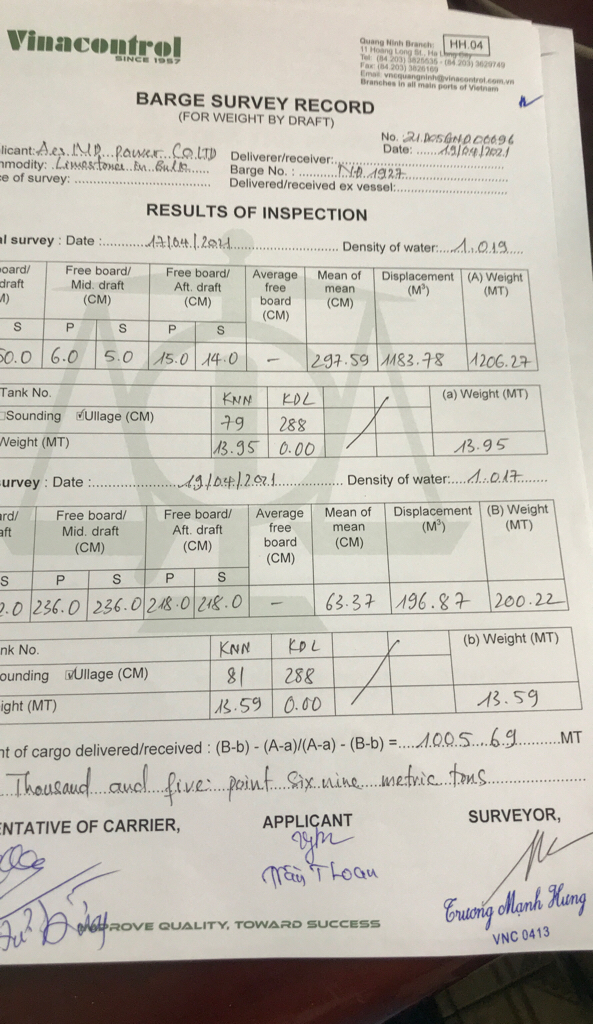 Vinacontrol
SINCE 1957
Quang Ninh Branch:
HH.04
11 Hoang Long St., Ha Long City
Tel: (84.203) 3825535 - (84.203) 3629749
Fax: (84.203) 3826169
Email: vncquangninh@vinacontrol.com.vn
Branches in all main ports of Vietnam
BARGE SURVEY RECORD
(FOR WEIGHT BY DRAFT)
No.
licant: Aes MD Power CO LTD
Deliverer/receiver:
Date: 19/04/2021
nmodity: Limestones In Bulk
Barge No. : ND 1927
e of survey:
Delivered/received ex vessel:
RESULTS OF INSPECTION
al survey : Date : 17/04/2021 Density of water: 1.019
board/ draft M) Free board/ Mid. draft (CM) Free board/ Aft. draft (CM) Average free board (CM) Mean of mean (CM) Displacement (M³) (A) Weight (MT)
S P S P S
50.0 6.0 5.0 15.0 14.0 - 297.59 1183.78 1206.27
Tank No. KNN KDL (a) Weight (MT)
Sounding Ullage (CM) 79 288
Weight (MT) 13.95 0.00 13.95
urvey : Date : 19/04/2021 Density of water: 1.017
ard/ aft Free board/ Mid. draft (CM) Free board/ Aft. draft (CM) Average free board (CM) Mean of mean (CM) Displacement (M³) (B) Weight (MT)
S P S P S
2.0 236.0 236.0 218.0 218.0 - 63.37 196.87 200.22
nk No. KNN KDL (b) Weight (MT)
ounding Ullage (CM) 81 288
ight (MT) 13.59 0.00 13.59
nt of cargo delivered/received : (B-b) - (A-a)/(A-a) - (B-b) = 1005.69 MT
Thousand and five point six nine metric tons
ENTATIVE OF CARRIER, APPLICANT SURVEYOR,
Trương Mạnh Hùng
VNC 0413
PROVE QUALITY, TOWARD SUCCESS